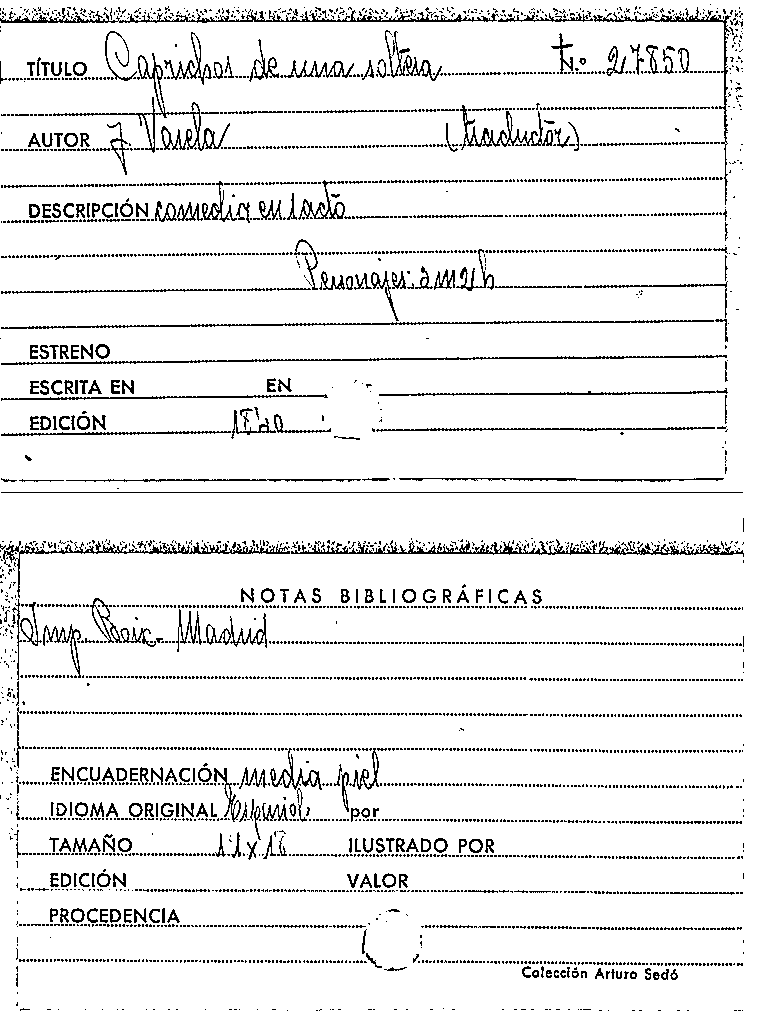 TÍTULO Caprichos de una soltera t. nº 27850
AUTOR J Varela (traductor)
DESCRIPCIÓN comedia en 1 acto
Personajes: 2m 2h
ESTRENO
ESCRITA EN EN
EDICIÓN 1840
NOTAS BIBLIOGRÁFICAS
Imp. Boix - Madrid
ENCUADERNACIÓN media piel
IDIOMA ORIGINAL Español por
TAMAÑO 11x18 ILUSTRADO POR
EDICIÓN VALOR
PROCEDENCIA
Colección Arturo Sedó